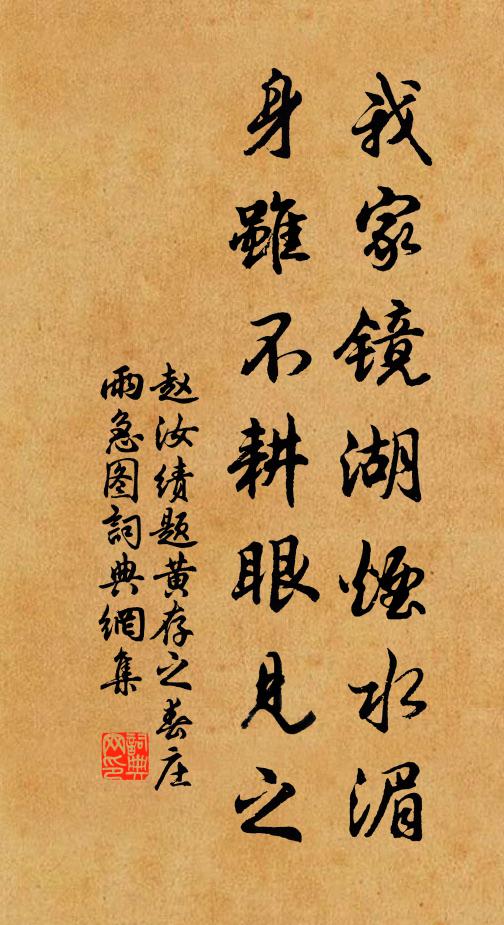 我家镜湖烟水湄
身雖不耕眼見之
赵汝绩题黄存之春庄
雨急图詞典網集
詞典网印